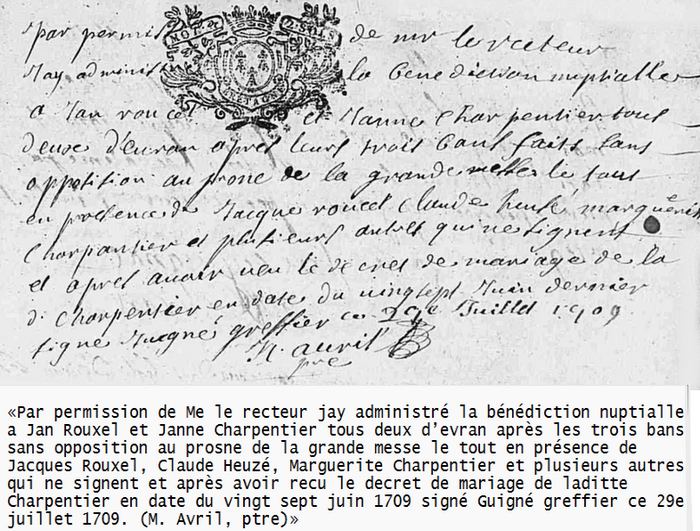 par permis de mr le recteur
Jay administ la benediction nuptialle
MOY. R 2 SOLS
BRETAGNE
a Jan roucel et Janne Charpentier tous
deux d'evran apres leurs trois bans faits sans
oppotition au prone de la grande messe le tout
en presence de Jacque roucel Claude heusé marguerit
Charpantier et plusieurs autres qui ne signent
et apres avoir veu le decret de mariage de la
d. Charpentier en date du vingt sept Juin dernier
signé Guigné greffier ce 29e Juillet 1709
M. avril
ptre
«Par permission de Me le recteur jay administré la bénédiction nuptialle
a Jan Rouxel et Janne Charpentier tous deux d’evran après les trois bans
sans opposition au prosne de la grande messe le tout en présence de
Jacques Rouxel, Claude Heuzé, Marguerite Charpentier et plusieurs autres
qui ne signent et après avoir recu le decret de mariage de laditte
Charpentier en date du vingt sept juin 1709 signé Guigné greffier ce 29e
juillet 1709. (M. Avril, ptre)»